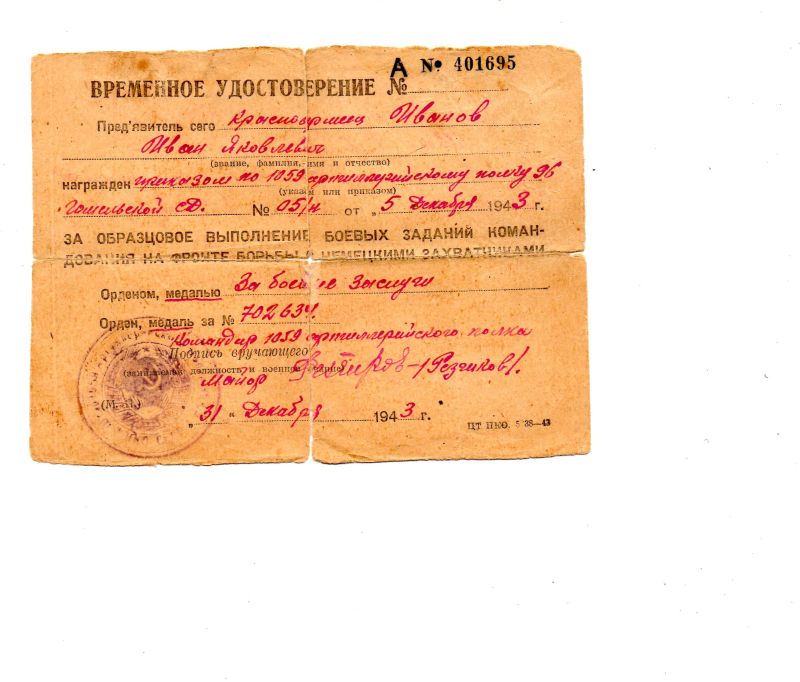 А № 401695
ВРЕМЕННОЕ УДОСТОВЕРЕНИЕ №
Пред'явитель сего красноармеец Иванов
Иван Яковлевич
(звание, фамилия, имя и отчество)
награжден приказом по 1059 артиллерийскому полку 96
(указом или приказом)
Гомельской сд. № 05/н от „5 Декабря 1943 г.
ЗА ОБРАЗЦОВОЕ ВЫПОЛНЕНИЕ БОЕВЫХ ЗАДАНИЙ КОМАН-
ДОВАНИЯ НА ФРОНТЕ БОРЬБЫ С НЕМЕЦКИМИ ЗАХВАТЧИКАМИ
Орденом, медалью За боевые заслуги
Орден, медаль за № 702634.
Командир 1059 артиллерийского полка
Подпись вручающего
(занимаемая должность и военное звание)
Майор (Резчиков).
(М. П.)
„31" Декабря 1943 г.
ЦТ НКО. 5 38—43